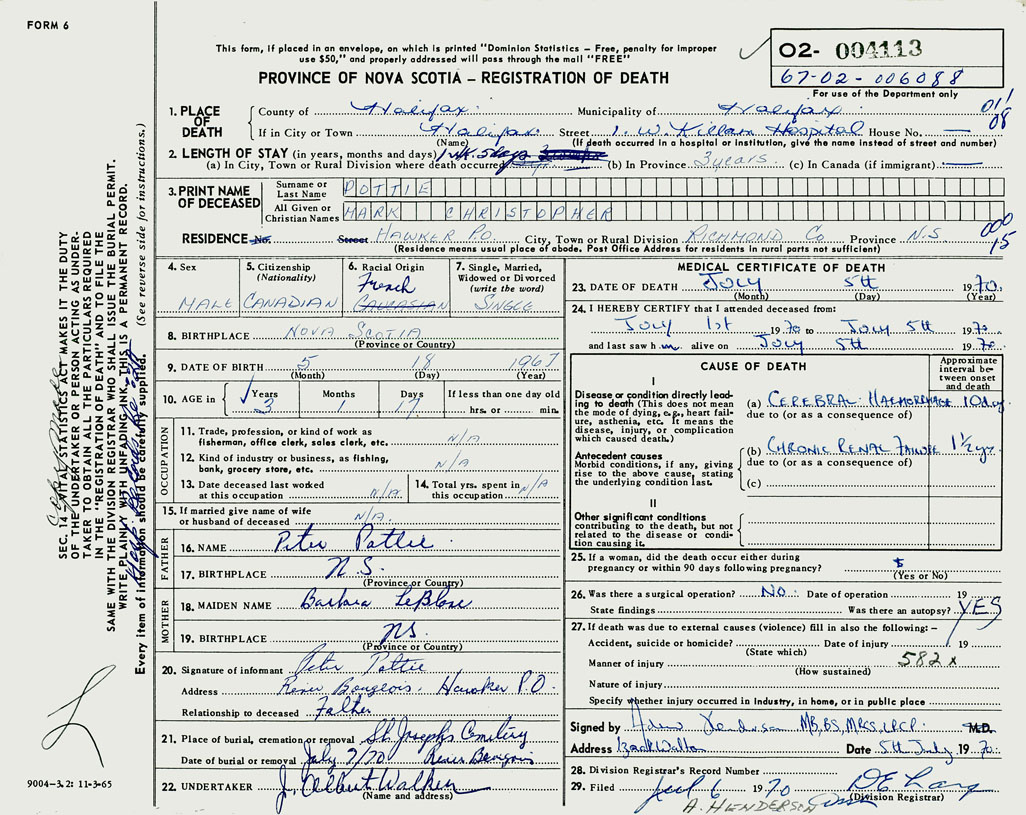 FORM 6
This form, if placed in an envelope, on which is printed "Dominion Statistics – Free, penalty for improper
use $50," and properly addressed will pass through the mail "FREE"
PROVINCE OF NOVA SCOTIA – REGISTRATION OF DEATH
02- 004113
67-02-006088
For use of the Department only
1. PLACE OF DEATH
County of Halifax Municipality of Halifax 011
If in City or Town Halifax Street I. W. Killam Hospital House No. — 08
(Name) (If death occurred in a hospital or institution, give the name instead of street and number)
2. LENGTH OF STAY (in years, months and days)
(a) In City, Town or Rural Division where death occurred 1 wk 5 days (b) In Province 3 years (c) In Canada (if immigrant) —
3. PRINT NAME OF DECEASED
Surname or Last Name POTTIE
All Given or Christian Names MARK CHRISTOPHER
000
RESIDENCE No. Street HAWKER P.O. City, Town or Rural Division RICHMOND Co Province N.S 15
(Residence means usual place of abode. Post Office Address for residents in rural parts not sufficient)
4. Sex
MALE
5. Citizenship
(Nationality)
CANADIAN
6. Racial Origin
French
CAUCASIAN
7. Single, Married,
Widowed or Divorced
(write the word)
SINGLE
8. BIRTHPLACE NOVA SCOTIA
(Province or Country)
9. DATE OF BIRTH 5 18 1967
(Month) (Day) (Year)
10. AGE in
Years Months Days If less than one day
3 1 17 hrs. or min.
OCCUPATION
11. Trade, profession, or kind of work as
fisherman, office clerk, sales clerk, etc. N/A
12. Kind of industry or business, as fishing,
bank, grocery store, etc. N/A
13. Date deceased last worked
at this occupation N/A
14. Total yrs. spent in
this occupation N/A
15. If married give name of wife
or husband of deceased N/A.
FATHER
16. NAME Peter Pottie
17. BIRTHPLACE N.S.
(Province or Country)
MOTHER
18. MAIDEN NAME Barbara LeBlanc
19. BIRTHPLACE NS.
(Province or Country)
20. Signature of informant Peter Pottie
Address River Bourgeois. Hawker P.O.
Relationship to deceased Father
21. Place of burial, cremation or removal St. Josephs Cemetery
Date of burial or removal July 7/70 River Bourgeois
22. UNDERTAKER J. Albert Walker
(Name and address)
MEDICAL CERTIFICATE OF DEATH
23. DATE OF DEATH JULY 5th 1970.
(Month) (Day) (Year)
24. I HEREBY CERTIFY that I attended deceased from:
July 1st 1970 to July 5th 1970
and last saw him alive on July 5th 1970
CAUSE OF DEATH
Approximate interval between onset and death
I
Disease or condition directly leading to death (This does not mean the mode of dying, e.g., heart failure, asthenia, etc. It means the disease, injury, or complication which caused death.)
(a) CEREBRAL HAEMORRHAGE 1 day
due to (or as a consequence of)
Antecedent causes
Morbid conditions, if any, giving rise to the above cause, stating the underlying condition last.
(b) CHRONIC RENAL FAILURE 1½ yr.
due to (or as a consequence of)
(c)
II
Other significant conditions contributing to the death, but not related to the disease or condition causing it.
25. If a woman, did the death occur either during
pregnancy or within 90 days following pregnancy?
(Yes or No)
26. Was there a surgical operation? NO. Date of operation 19
State findings Was there an autopsy? YES
27. If death was due to external causes (violence) fill in also the following: –
Accident, suicide or homicide? Date of injury 19
(State which)
Manner of injury 582x
(How sustained)
Nature of injury
Specify whether injury occurred in industry, in home, or in public place
Signed by Henderson MB,BS, MRCS, LRCP. M.D.
Address Izaak Walton Date 5th July 1970.
28. Division Registrar's Record Number
29. Filed Jul 6 1970
(Division Registrar)
A. HENDERSON
SEC. 14 – VITAL STATISTICS ACT MAKES IT THE DUTY
OF THE UNDERTAKER OR PERSON ACTING AS UNDER-
TAKER TO OBTAIN ALL THE PARTICULARS REQUIRED
IN THE "REGISTRATION OF DEATH" AND TO FILE THE
SAME WITH THE DIVISION REGISTRAR WHO SHALL ISSUE THE BURIAL PERMIT.
WRITE PLAINLY WITH UNFADING INK. THIS IS A PERMANENT RECORD.
Every item of information should be carefully supplied. (See reverse side for instructions.)
9004-3.2: 11-3-65